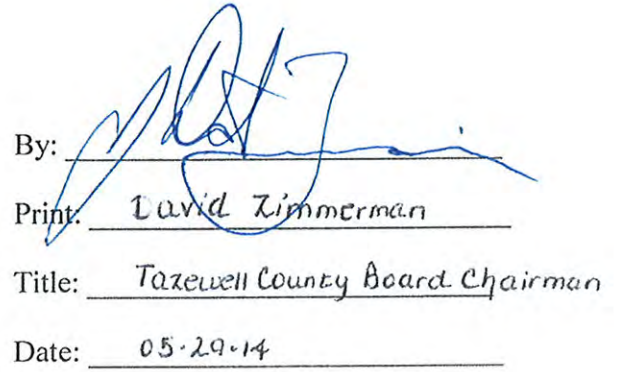 By:
Print: David Zimmerman
Title: Tazewell County Board Chairman
Date: 05.29.14